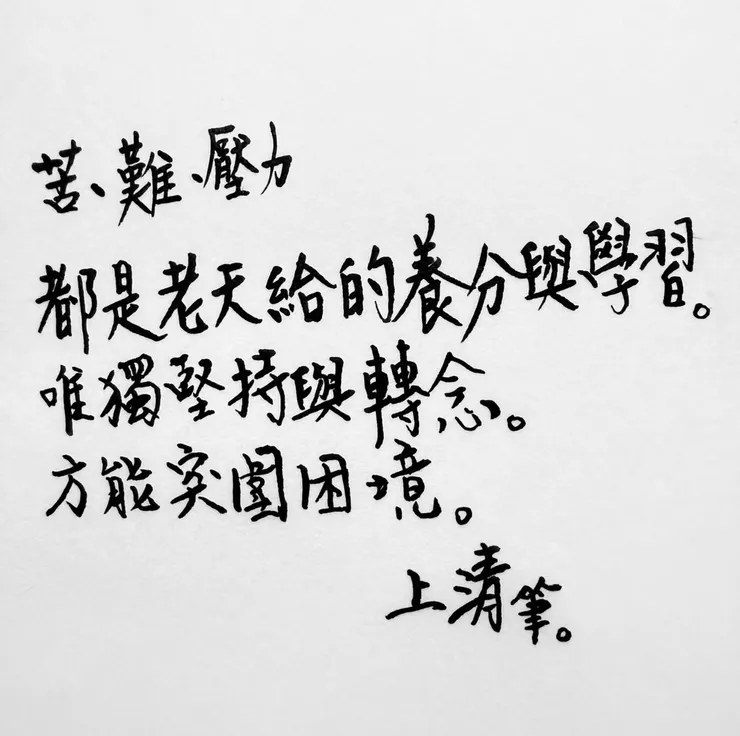 苦、難、壓力
都是老天給的養分與學習。
唯獨堅持與轉念。
方能突圍困境。
上清筆。